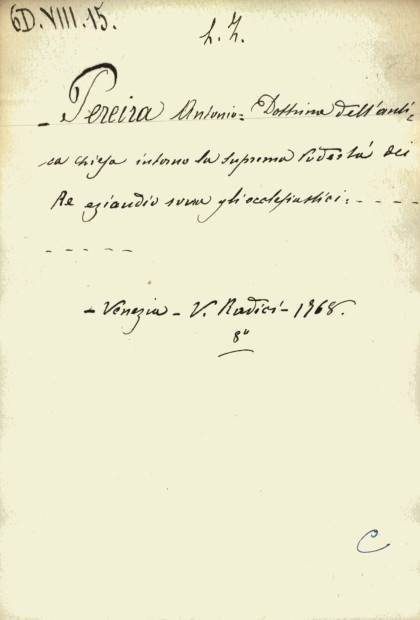 6D.VIII.15.
L. Z.
- Pereira Antonio = Dottrina dell'anti=
ca chiesa intorno la suprema Podestà dei
Re eziandio sovra gli ecclesiastici. - - - -
- - - - -
- Venezia - V. Radici - 1768.
8°
C